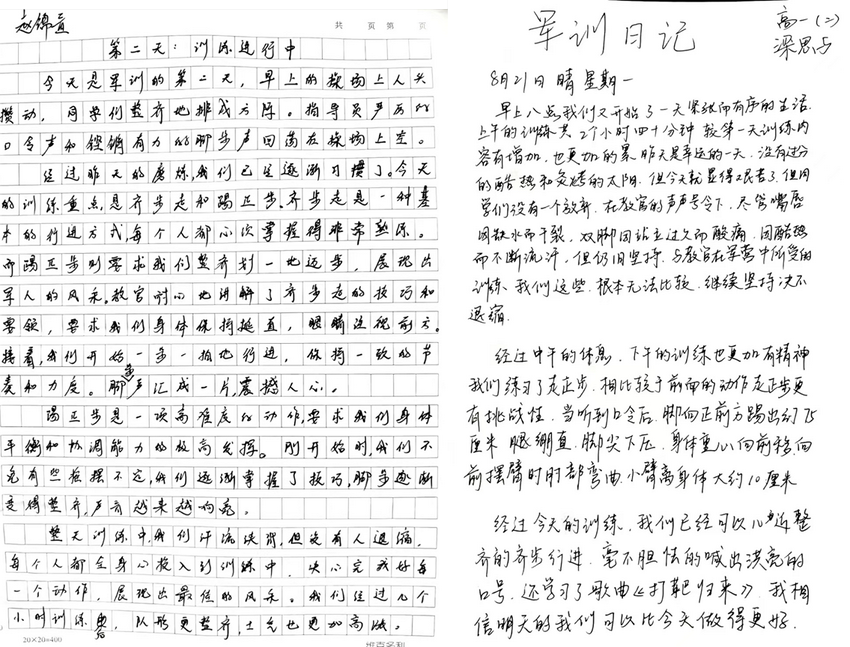 赵锦萱
共 页 第 页
第二天：训练进行中
今天是军训的第二天，早上的操场上人头
攒动，同学们整齐地排成方阵。指导员严厉的
口令声和铿锵有力的脚步声回荡在操场上空。
经过昨天的磨炼，我们已经逐渐习惯了。今天
的训练重点是齐步走和踢正步，齐步走是一种基
本的行进方式，每个人都必须掌握得非常熟练。
而踢正步则要求我们整齐划一地迈步，展现出
军人的风采。教官耐心地讲解了齐步走的技巧和
要领，要求我们身体保持挺直，眼睛注视前方。
接着，我们开始一步一拍地行进，保持一致的节
奏和力度。脚步声汇成一片，震撼人心。
踢正步是一项高难度的动作，要求我们身体
平衡和协调能力的极高发挥。刚开始时，我们不
免有些摇摆不定，我们逐渐掌握了技巧，脚步逐渐
变得整齐，声音越来越响亮。
整天训练中，我们汗流浃背，但没有人退缩，
每个人都全身心投入到训练中，决心完成好每
一个动作，展现出最佳的风采。我们经过几个
小时训练后，队形更整齐，士气也更加高涨。
20×20=400
军训日记
高一(二)
梁思
8月21日 晴 星期一
早上八点，我们又开始了一天紧张而有序的生活.
上午的训练共2个小时四十分钟 较第一天训练内
容有增加，也更加的累.昨天是幸运的一天，没有过分
的酷热和炙烤的太阳.但今天就显得艰苦了.但同
学们没有一个放弃.在教官的声声号令下，尽管嘴唇
因缺水而干裂，双脚因站立过久而酸痛，因酷热
而不断流汗，但仍旧坚持.与教官在军营中所受的
训练，我们这些，根本无法比较.继续坚持决不
退缩.
经过中午的休息，下午的训练也更加有精神
我们练习了走正步，相比较于前面的动作走正步更
有挑战性，当听到口令后，脚向正前方踢出约75
厘米 腿绷直，脚尖下压，身体重心向前移，向
前摆臂时肘部弯曲，小臂离身体大约10厘米
经过今天的训练，我们已经可以整
齐的齐步行进，毫不胆怯的喊出洪亮的
口号，还学习了歌曲《打靶归来》，我相
信明天的我们可以比今天做得更好.